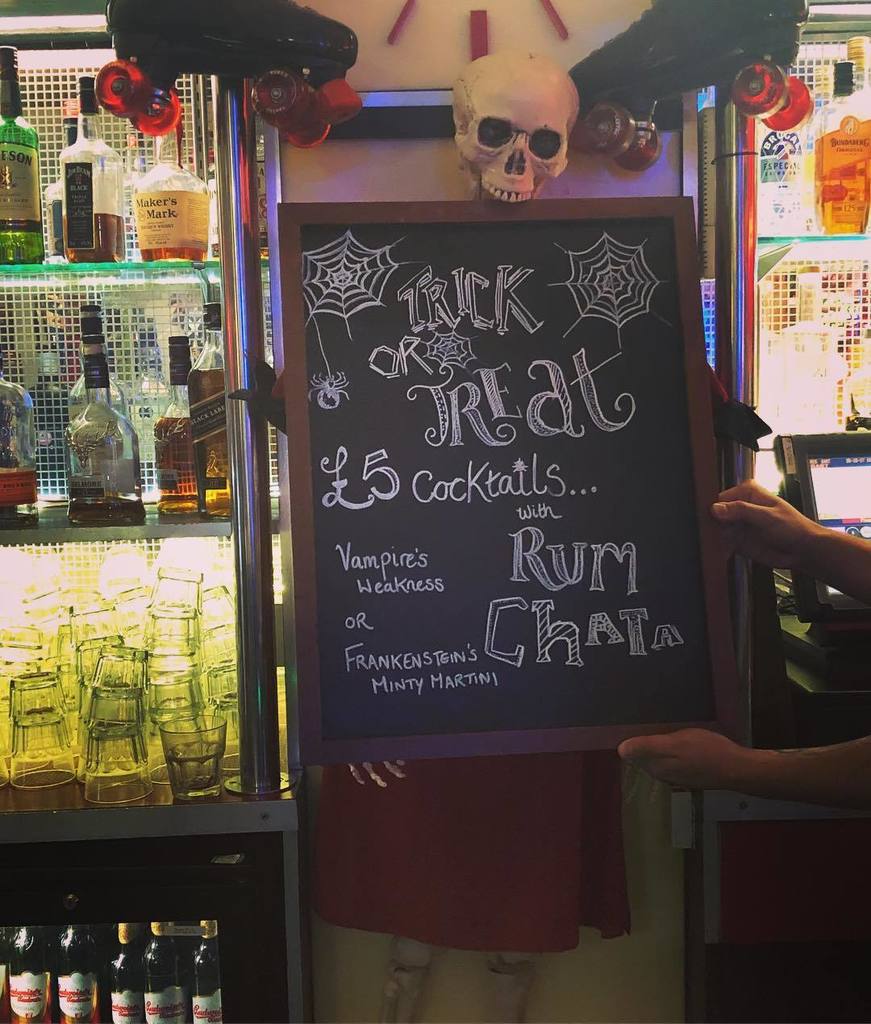 TRICK
OR
TREAT
£5 COCKTAILS...
with
RUM
CHATA
Vampire's
Weakness
OR
FRANKENSTEIN'S
MINTY MARTINI
Maker's
Mark
JIM BEAM
BLACK
BLACK LABEL
BUNDABERG